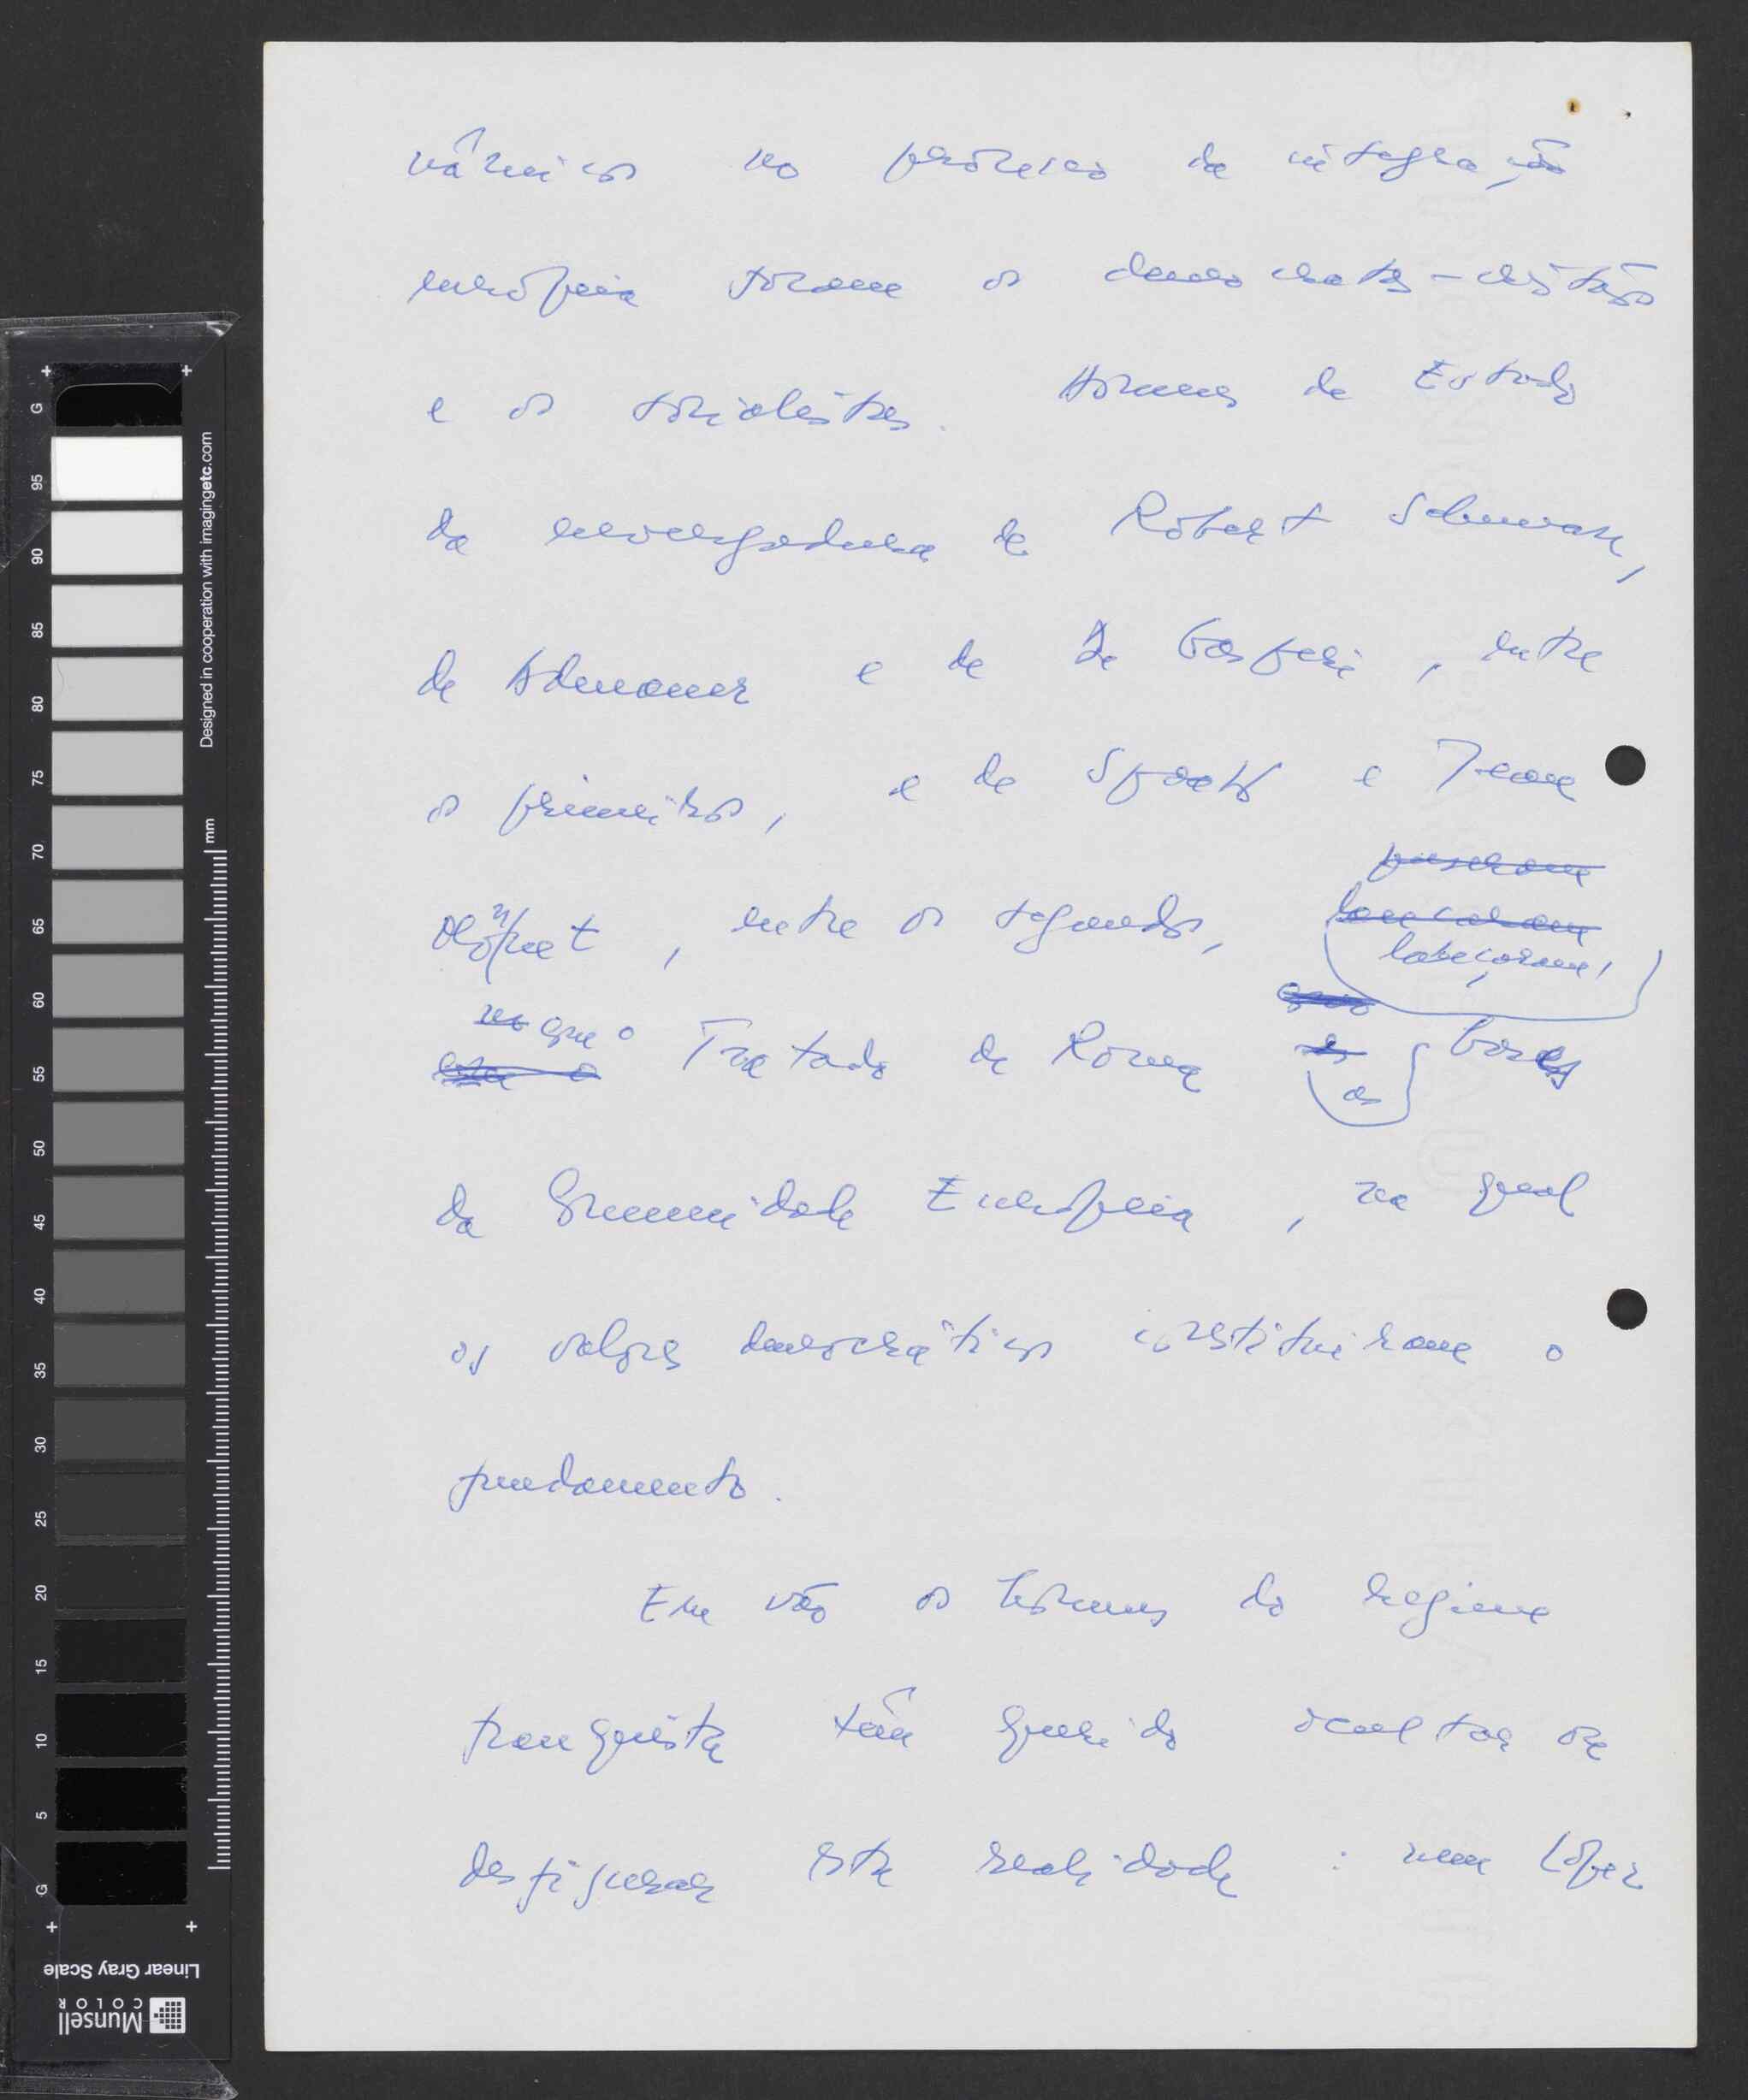 nâmicos no processo da integração
europeia foram os democratas-cristãos
e os socialistas. Homens de Estado
da envergadura de Robert Schuman,
de Adenauer e de De Gasperi, entre
os primeiros, e de Spaak e Jean
puseram
Monnet, entre os segundos, lançaram
lançaram,
no que o Tratado de Roma as bases
da Comunidade Europeia, na qual
os valores democráticos constituiram o
fundamento.
Em vão os homens do regime
franquista têm querido ocultar ou
desfigurar esta realidade: nem López
G 95 90 85 80 75 70 65 60 55 50 45 40 35 30 25 20 15 10 5 G
Designed in cooperation with imagingetc.com
mm
Linear Gray Scale
Munsell
COLOR